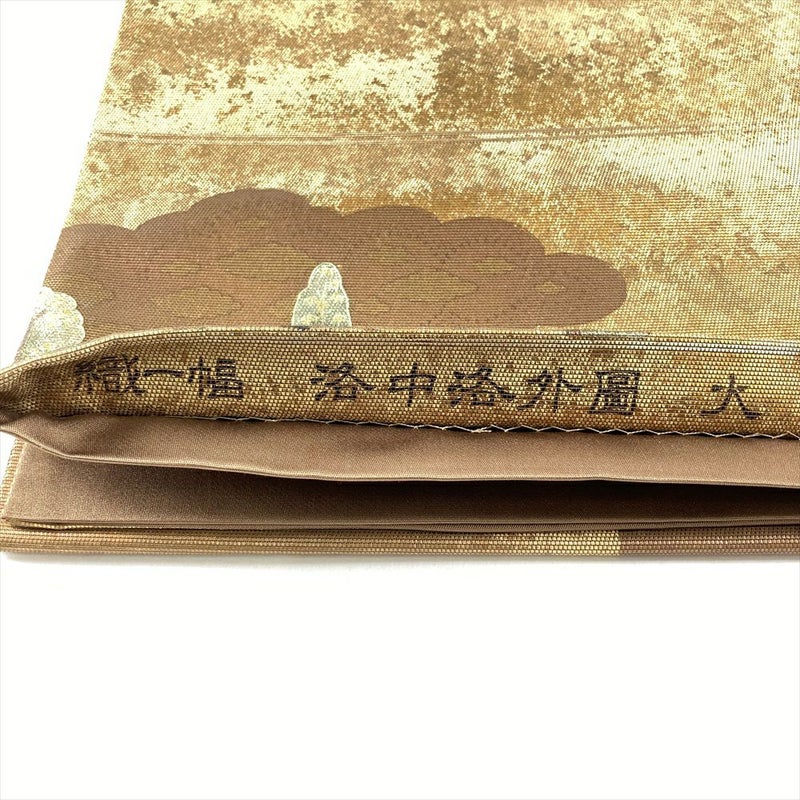 織一幅 洛中洛外圖 大